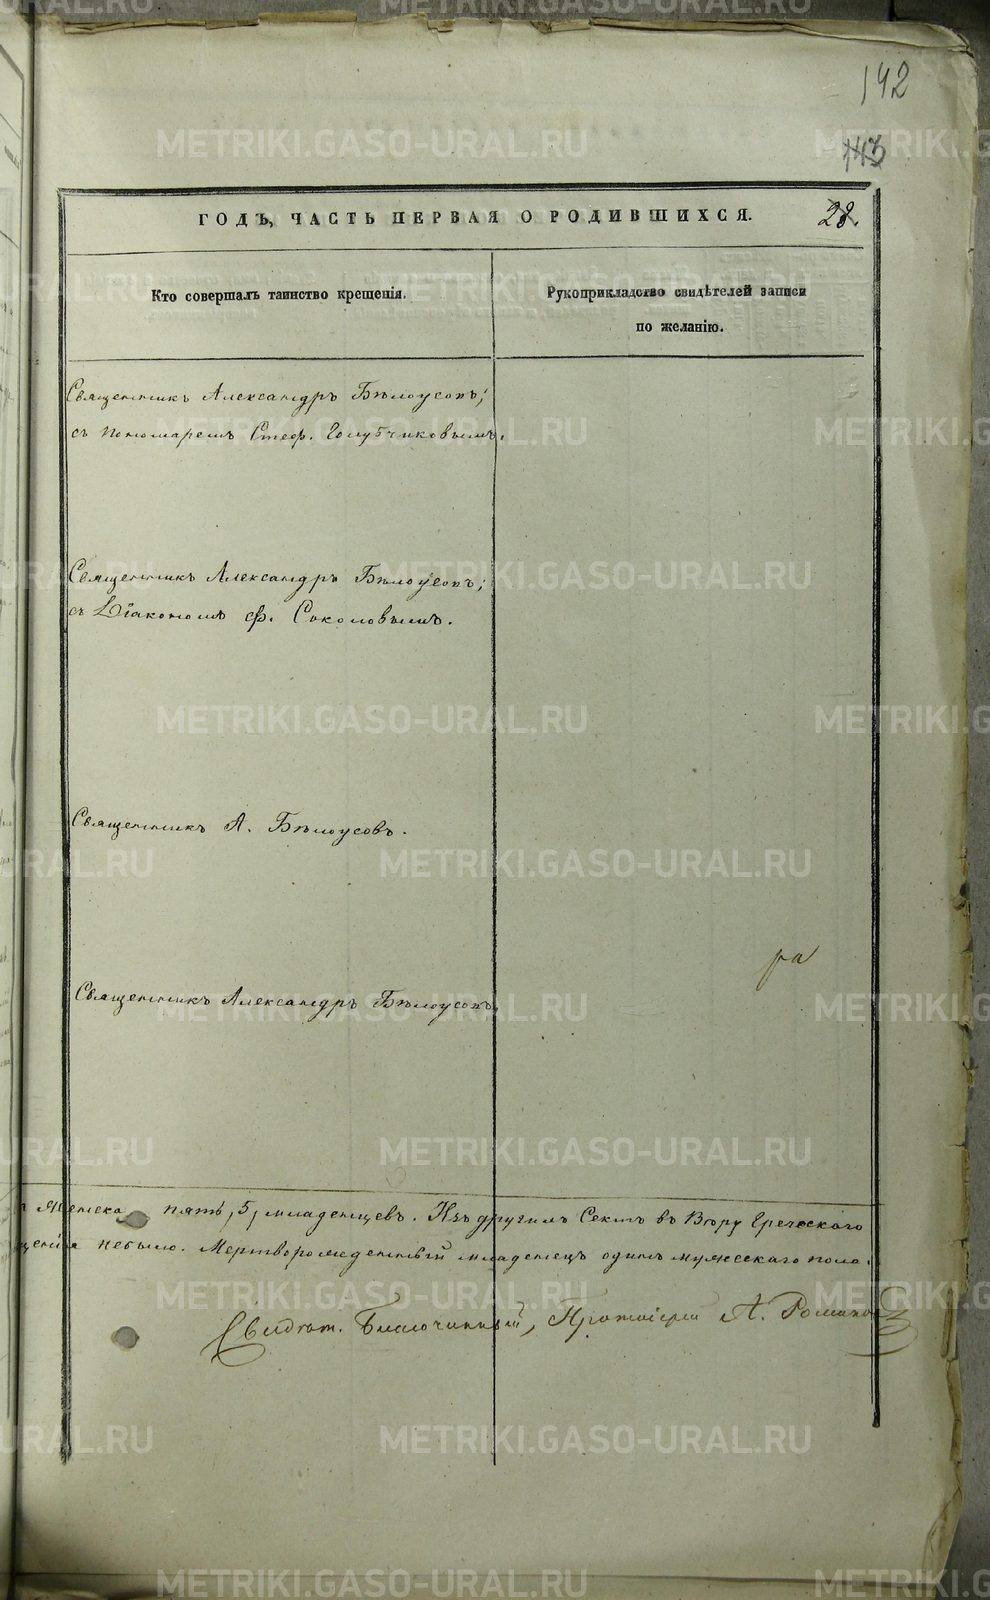 142
143
ГОДЪ, ЧАСТЬ ПЕРВАЯ О РОДИВШИХСЯ.
28.
Кто совершалъ таинство крещенія.
Рукоприкладство свидѣтелей записи
по желанію.
Священникъ Александръ Бѣлоусовъ;
съ пономаремъ Стеф. Голубчиковымъ.
Священникъ Александръ Бѣлоусовъ;
съ Діакономъ Ф. Соколовымъ.
Священникъ А. Бѣлоусовъ.
ра
Священникъ Александръ Бѣлоусовъ.
женска пять, 5, младенцевъ. Изъ другихъ Сектъ въ Вѣру Греческаго
щенія небыло. Мертворожденный младенецъ одинъ мужескаго пола.
Благочинный, Протоіерей А.
METRIKI.GASO-URAL.RU